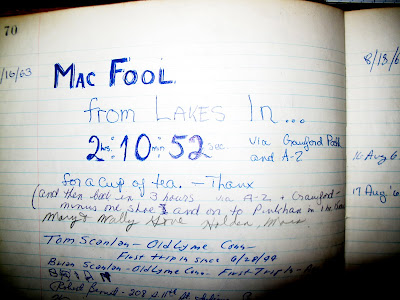 70
8/15/6
/16/63
MAC FOOL
from LAKES In...
2 hrs: 10 min 52 sec. via Crawford Path
and A-Z
16 Aug 6
for a cup of tea. - Thanx
(and then back in 3 hours via A-Z + Crawford-
minus one shoe) and on to Pinkham in
17 Aug '6
Mary & Wally Gove Holden, Mass
Tom Scanlon - Old Lyme Conn -
First trip is since 6/28/
Brian Scanlon - Old Lyme Conn. First Trip -
Robert